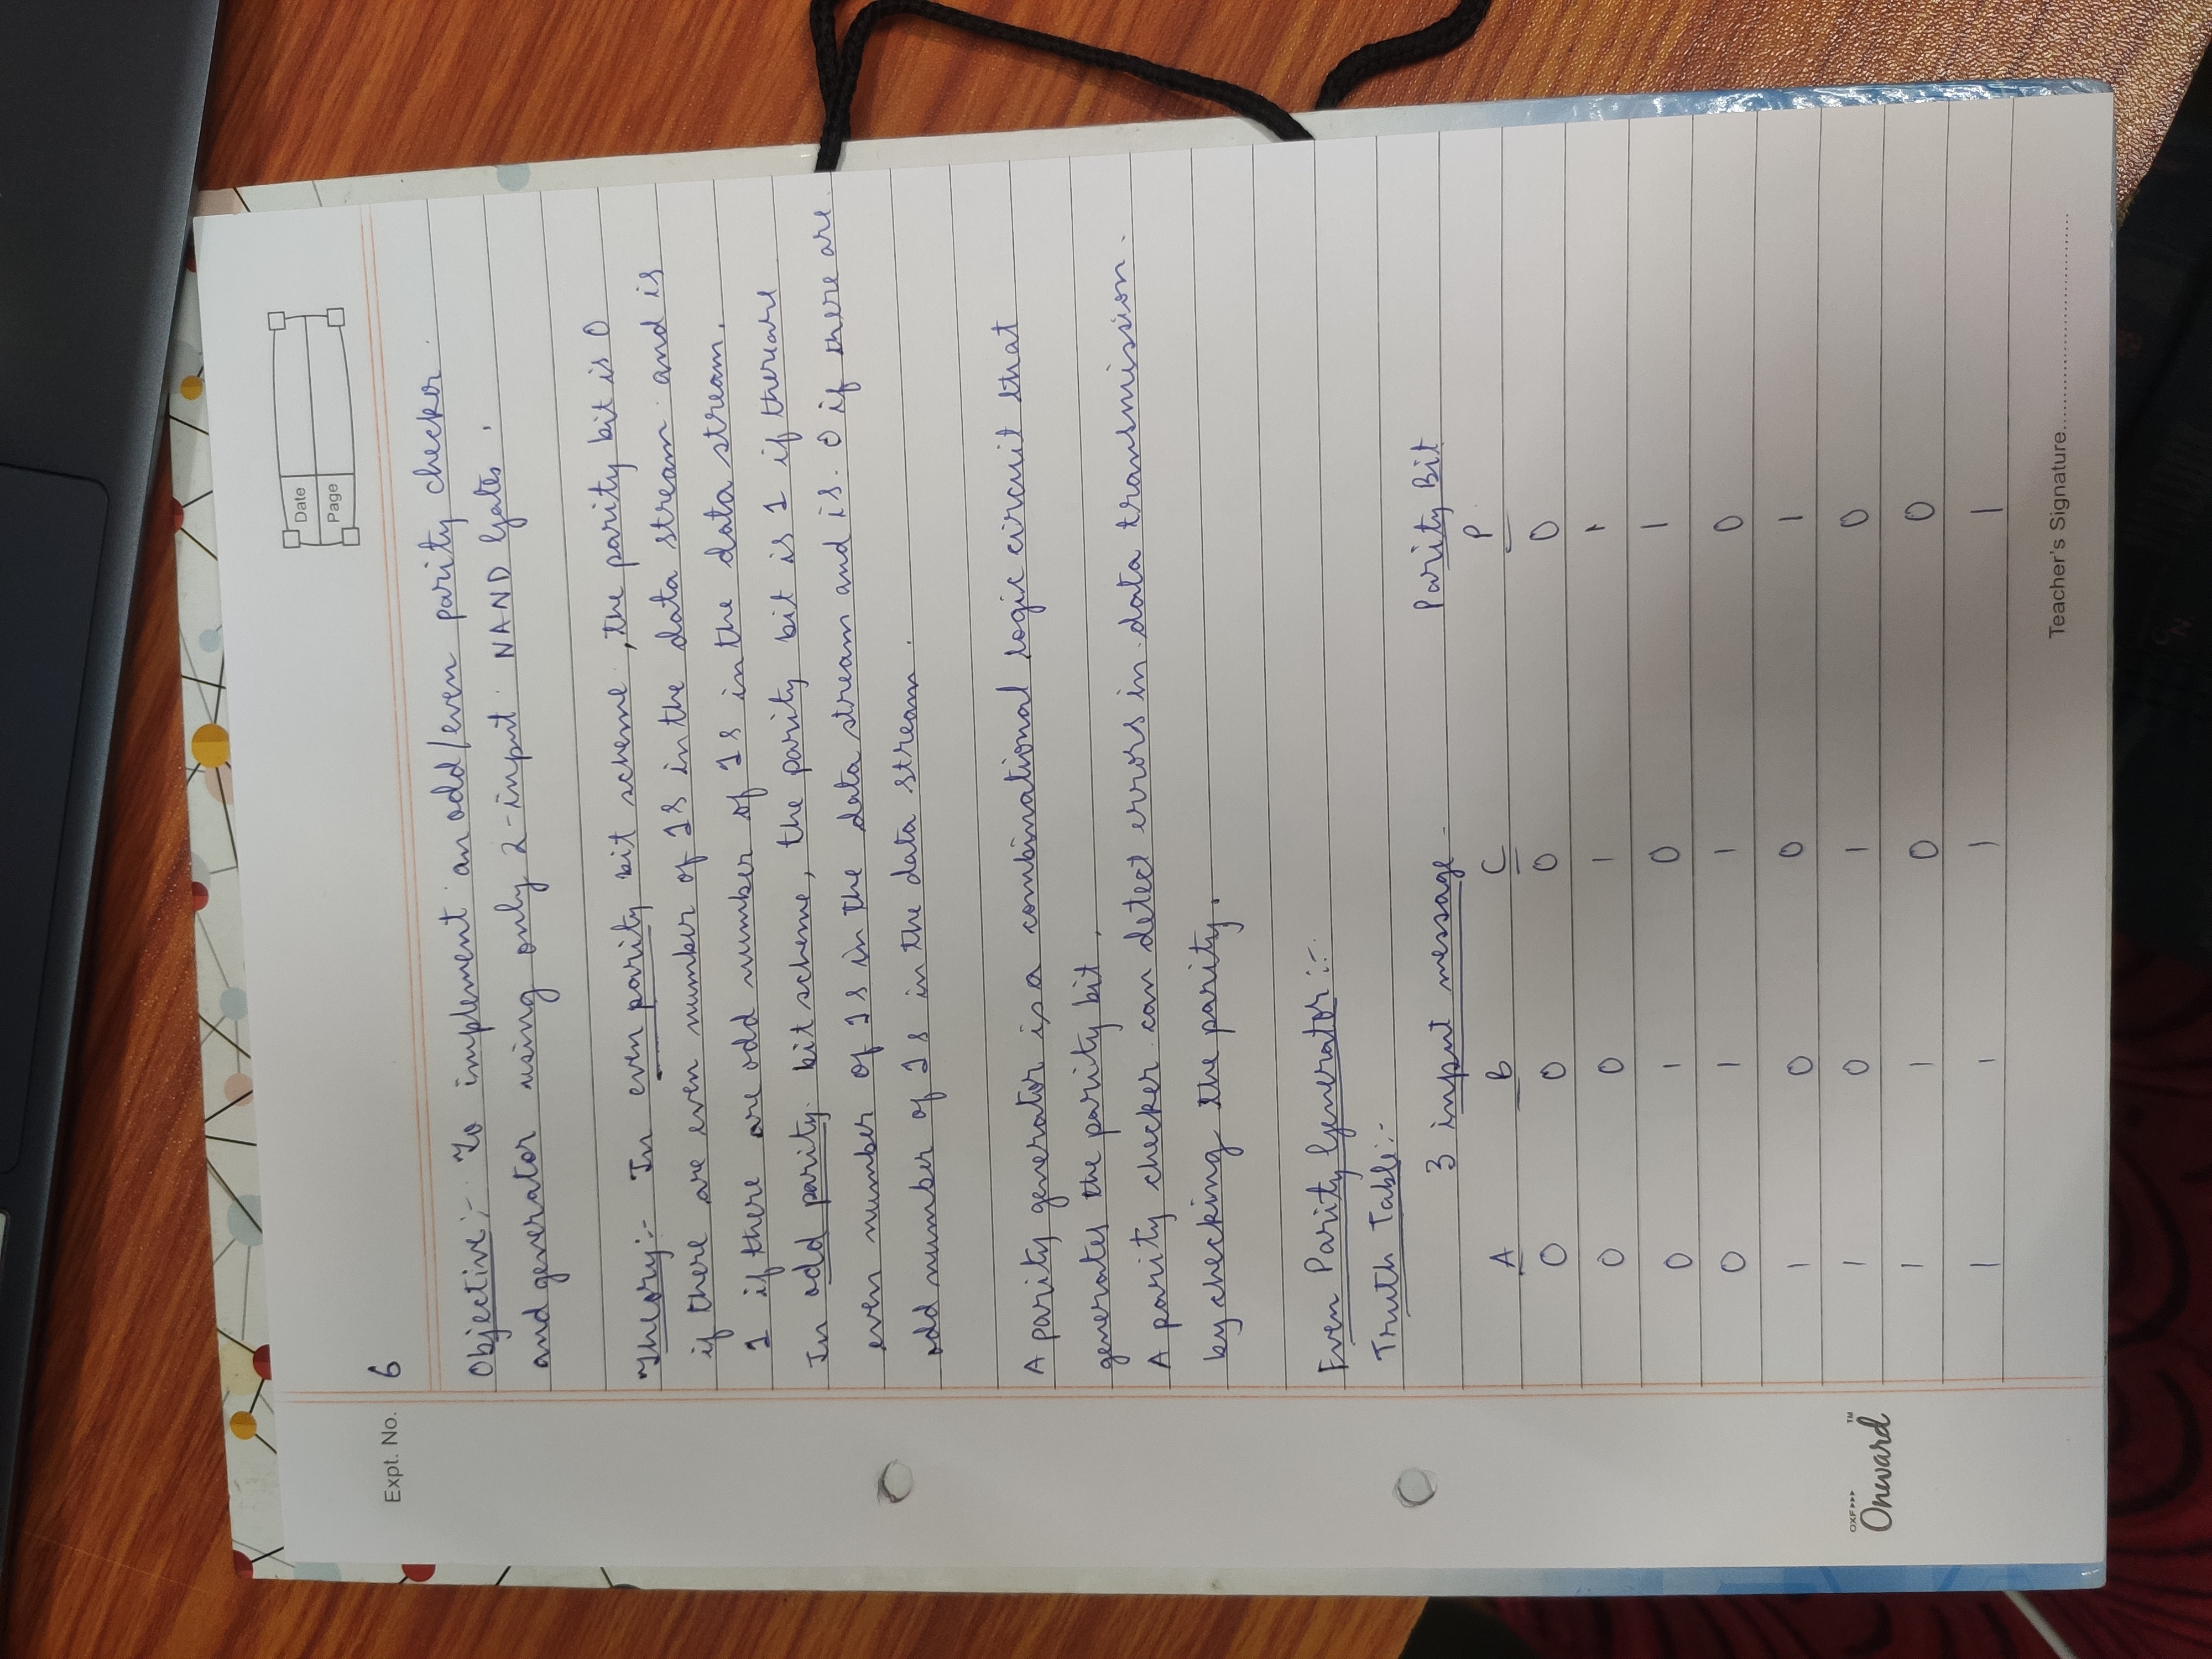 Date
Page
Expt. No. 6
Objective:- To implement an odd/even parity checker
and generator using only 2-input NAND Gates.
Theory:- In even parity bit scheme, the parity bit is 0
if there are even number of 1s in the data stream and is
1 if there are odd number of 1s in the data stream.
In odd parity bit scheme, the parity bit is 1 if there are
even number of 1s in the data stream and is 0 if there are
odd number of 1s in the data stream.
A parity generator is a combinational logic circuit that
generates the parity bit.
A parity checker can detect errors in data transmission
by checking the parity.
Even Parity Generator:-
Truth Table:-
3 input message Parity Bit
A B C P
0 0 0 0
0 0 1 1
0 1 0 1
0 1 1 0
1 0 0 1
1 0 1 0
1 1 0 0
1 1 1 1
OXF
Onward™
Teacher's Signature..................................